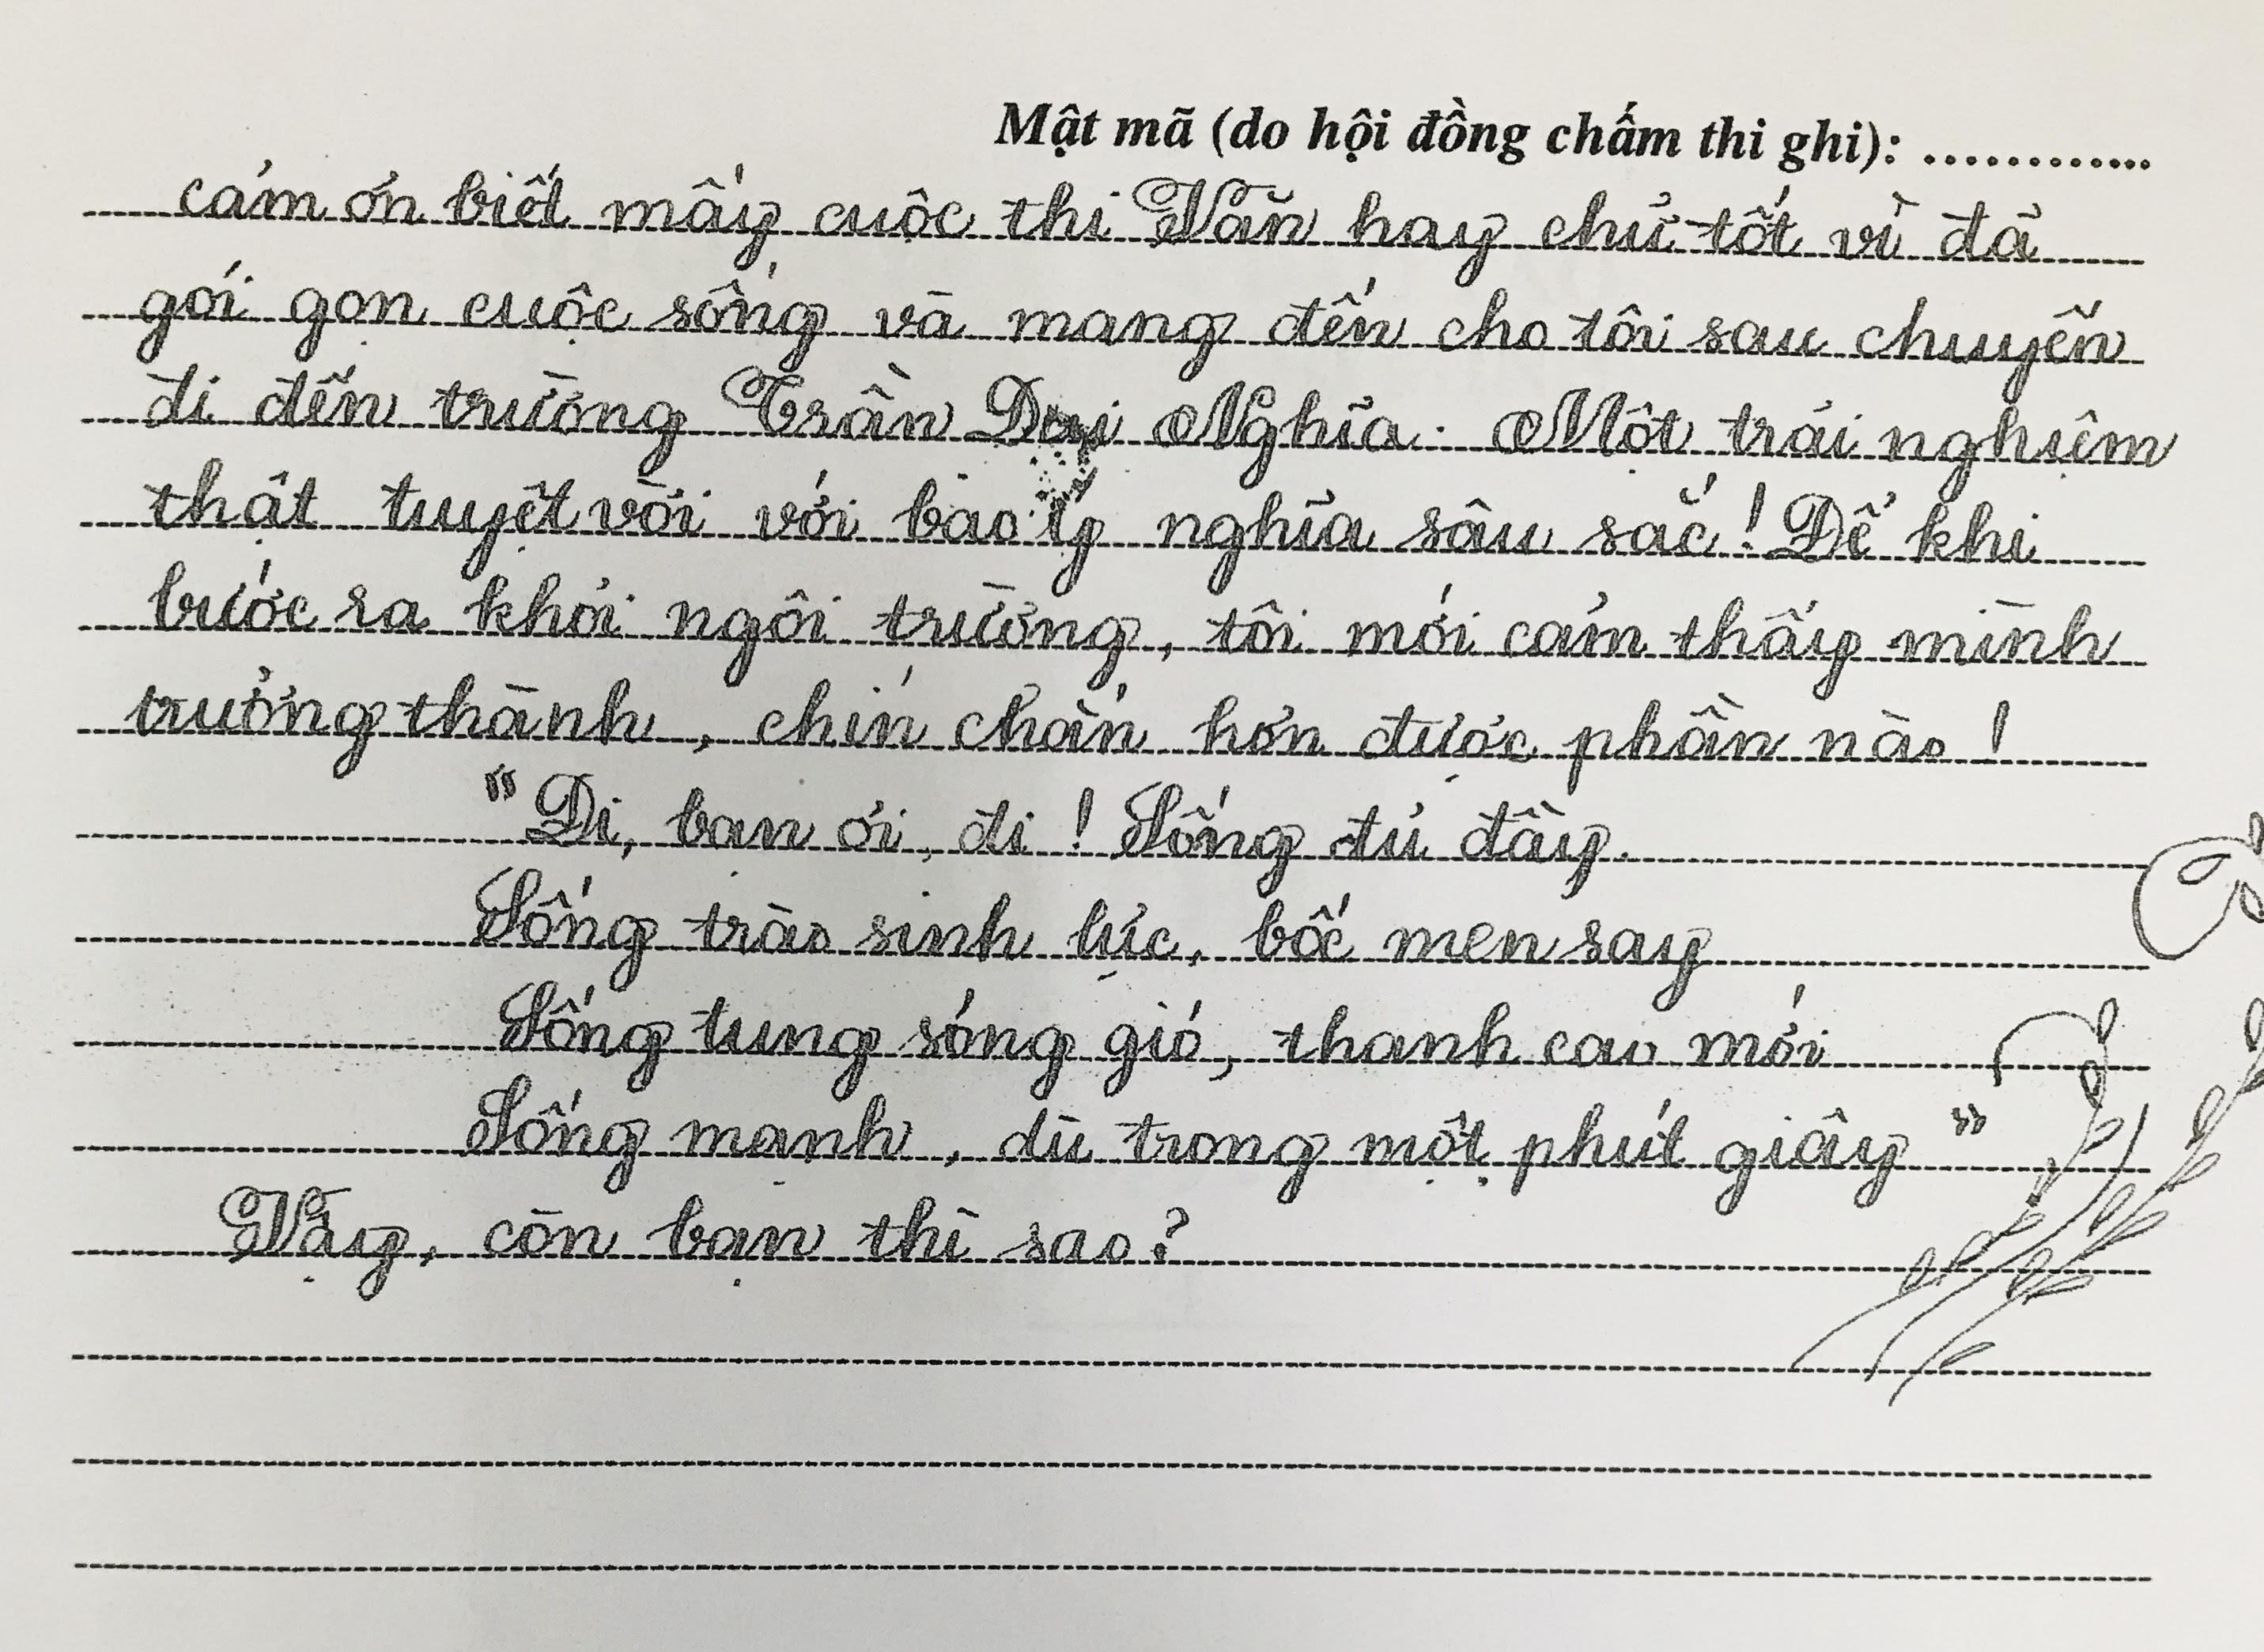 Mật mã (do hội đồng chấm thi ghi): ............
cảm ơn biết mấy cuộc thi Văn hay chữ tốt vì đã
gói gọn cuộc sống và mang đến cho tôi sau chuyến
đi đến trường Trần Đại Nghĩa. Một trải nghiệm
thật tuyệt vời với bao ý nghĩa sâu sắc! Để khi
bước ra khỏi ngôi trường, tôi mới cảm thấy mình
trưởng thành, chín chắn hơn được phần nào!
"Đi, bạn ơi, đi! Sống đủ đầy.
Sống trào sinh lực, bốc men say
Sống tung sóng gió, thanh cao mới
Sống mạnh, dù trong một phút giây"
Vậy, còn bạn thì sao?